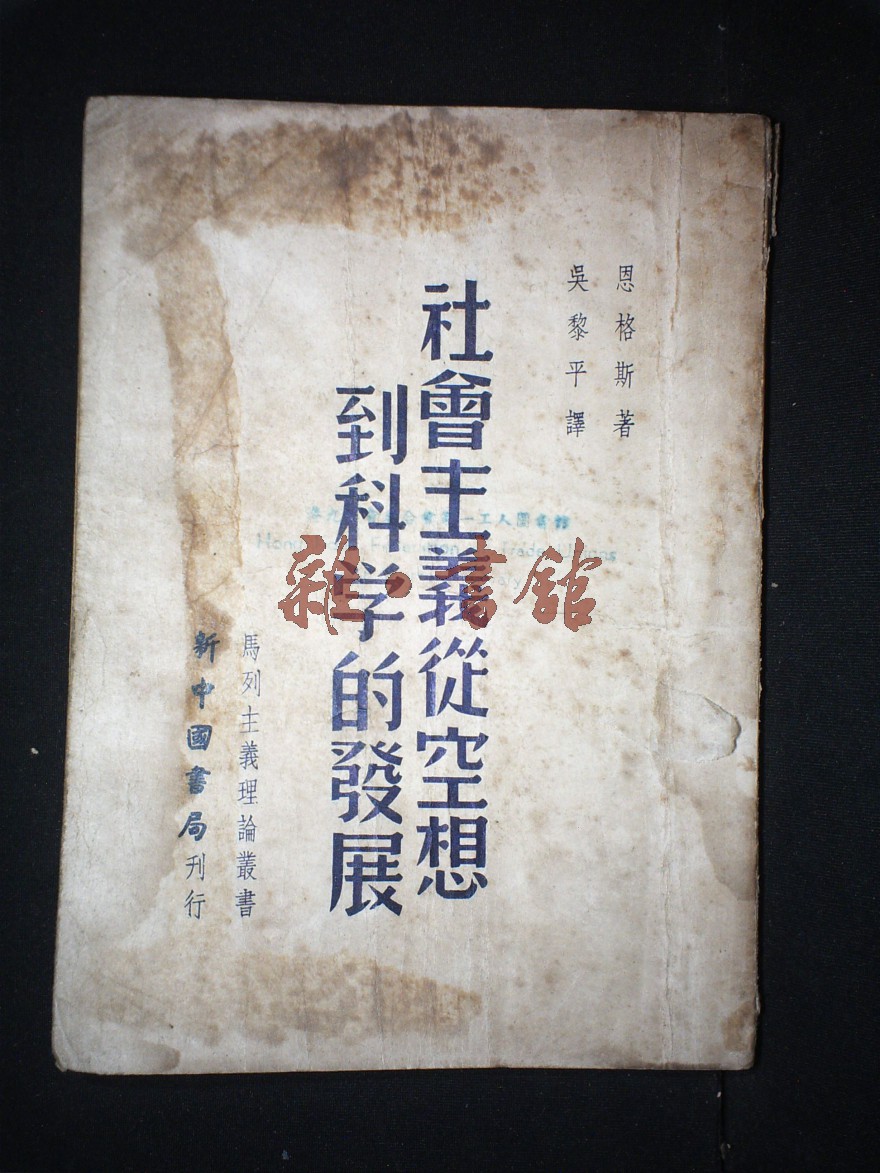 恩格斯著
吳黎平譯
社會主義從空想
到科学的發展
馬列主義理論叢書
新中國書局刊行
一工人圖書館
雜·書館